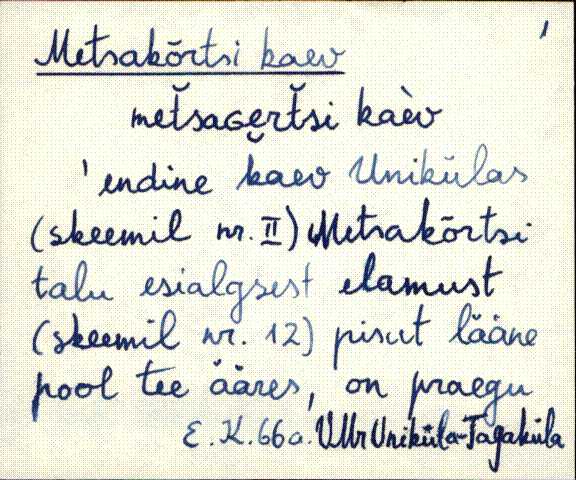 Metsakõrtsi kaev
met̆saɢert̆si kaèv
'endine kaev Unikülas
(skeemil nr. II) Metsakõrtsi
talu esialgsest elamust
(skeemil nr. 12) pisut lääne
pool tee ääres, on praegu
E. K. 66a. VMr Uniküla-Tagaküla